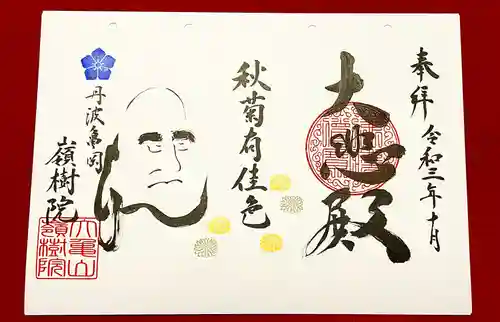 奉拝
令和三年十月
大雄殿
秋菊有佳色
丹波亀岡
嶺樹院
大亀山
嶺樹院